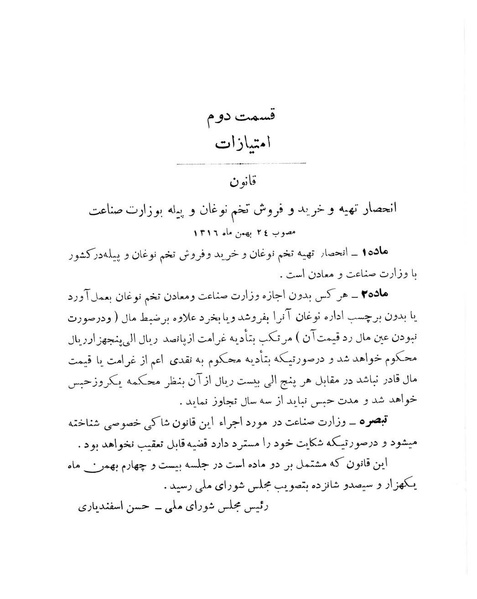 قسمت دوم
امتیازات
قانون
انحصار تهیه و خرید و فروش تخم نوغان و پیله بوزارت صناعت
مصوب ۲۴ بهمن ماه ۱۳۱۶
ماده۱ ـ انحصار تهیه تخم نوغان و خرید وفروش تخم نوغان و پیله در کشور
با وزارت صناعت و معادن است .
ماده۲ ـ هر کس بدون اجازه وزارت صناعت ومعادن تخم نوغان بعمل آورد
یا بدون برچسب اداره نوغان آنرا بفروشد ویا بخرد علاوه برضبط مال ( ودرصورت
نبودن عین مال رد قیمت آن ) مرتکب بتأدیه غرامت از پانصد ریال الی پنجهزار ریال
محکوم خواهد شد و درصورتیکه بتأدیه محکوم به نقدی اعم از غرامت یا قیمت
مال قادر نباشد در مقابل هر پنج الی بیست ریال از آن بنظر محکمه یکروز حبس
خواهد شد و مدت حبس نباید از سه سال تجاوز نماید .
تبصره ـ وزارت صناعت در مورد اجراء این قانون شاکی خصوصی شناخته
میشود و درصورتیکه شکایت خود را مسترد دارد قضیه قابل تعقیب نخواهد بود .
این قانون که مشتمل بر دو ماده است در جلسه بیست و چهارم بهمن ماه
یکهزار و سیصدو شانزده بتصویب مجلس شورای ملی رسید .
رئیس مجلس شورای ملی ـ حسن اسفندیاری